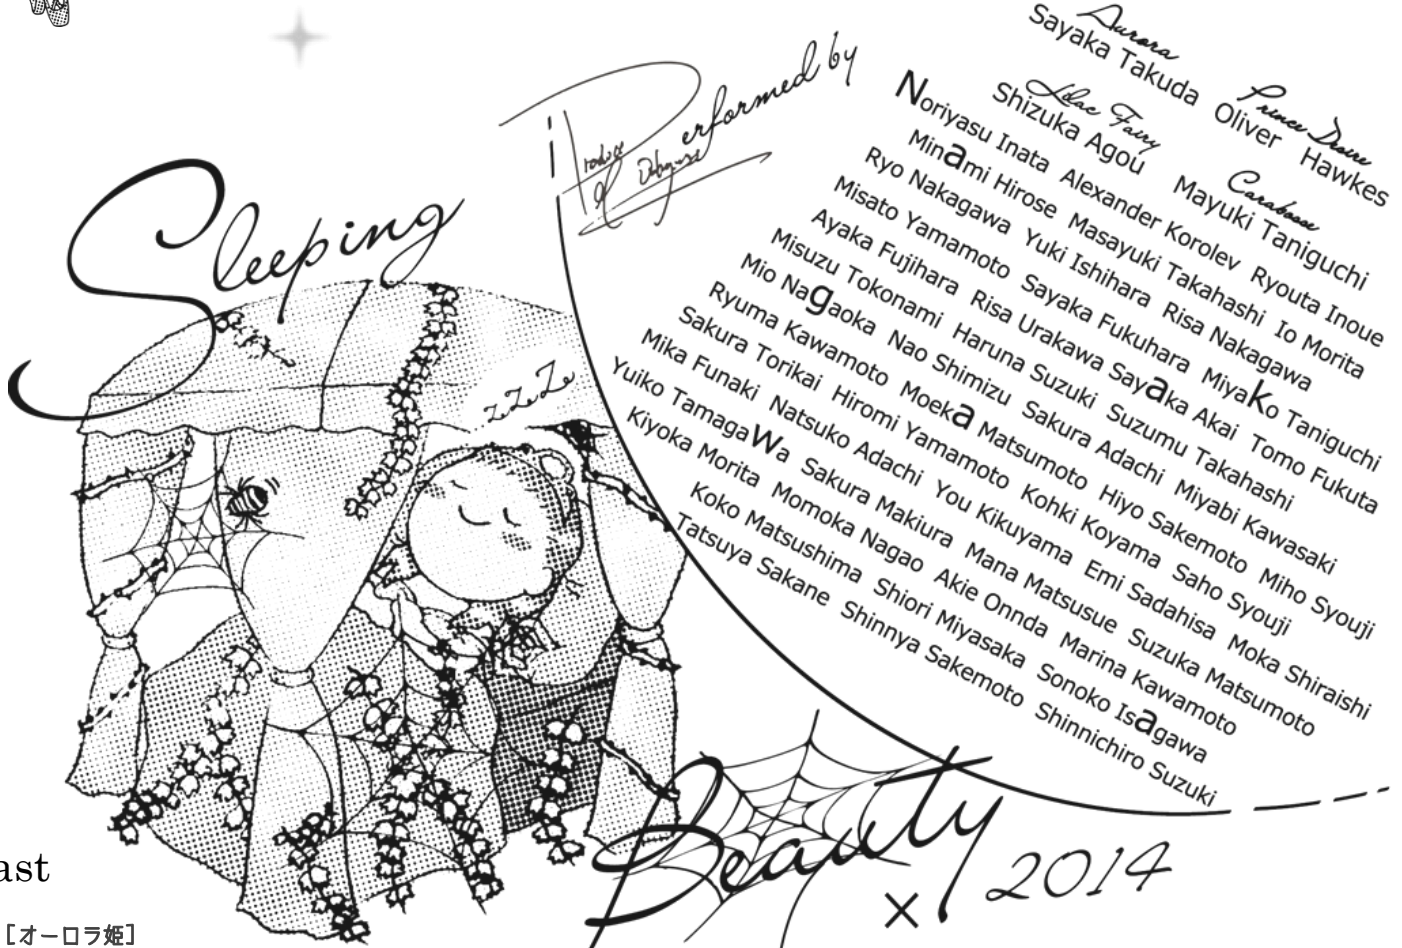 Sleeping
zZzZz
Performed by
Produce
of
Aurora
Sayaka Takuda
Prince Desire
Oliver Hawkes
Lilac Fairy
Shizuka Agou
Carabosse
Mayuki Taniguchi
Noriyasu Inata Alexander Korolev Ryouta Inoue
Minami Hirose Masayuki Takahashi Io Morita
Ryo Nakagawa Yuki Ishihara Risa Nakagawa
Misato Yamamoto Sayaka Fukuhara Miyako Taniguchi
Ayaka Fujihara Risa Urakawa Sayaka Akai Tomo Fukuta
Misuzu Tokonami Haruna Suzuki Suzumu Takahashi
Mio Nagaoka Nao Shimizu Sakura Adachi Miyabi Kawasaki
Ryuma Kawamoto Moeka Matsumoto Hiyo Sakemoto Miho Syouji
Sakura Torikai Hiromi Yamamoto Kohki Koyama Saho Syouji
Mika Funaki Natsuko Adachi You Kikuyama Emi Sadahisa Moka Shiraishi
Yuiko Tamagawa Sakura Makiura Mana Matsusue Suzuka Matsumoto
Kiyoka Morita Momoka Nagao Akie Onnda Marina Kawamoto
Koko Matsushima Shiori Miyasaka Sonoko Isagawa
Tatsuya Sakane Shinnya Sakemoto Shinnichiro Suzuki
Beauty × 2014
ast
[オーロラ姫]